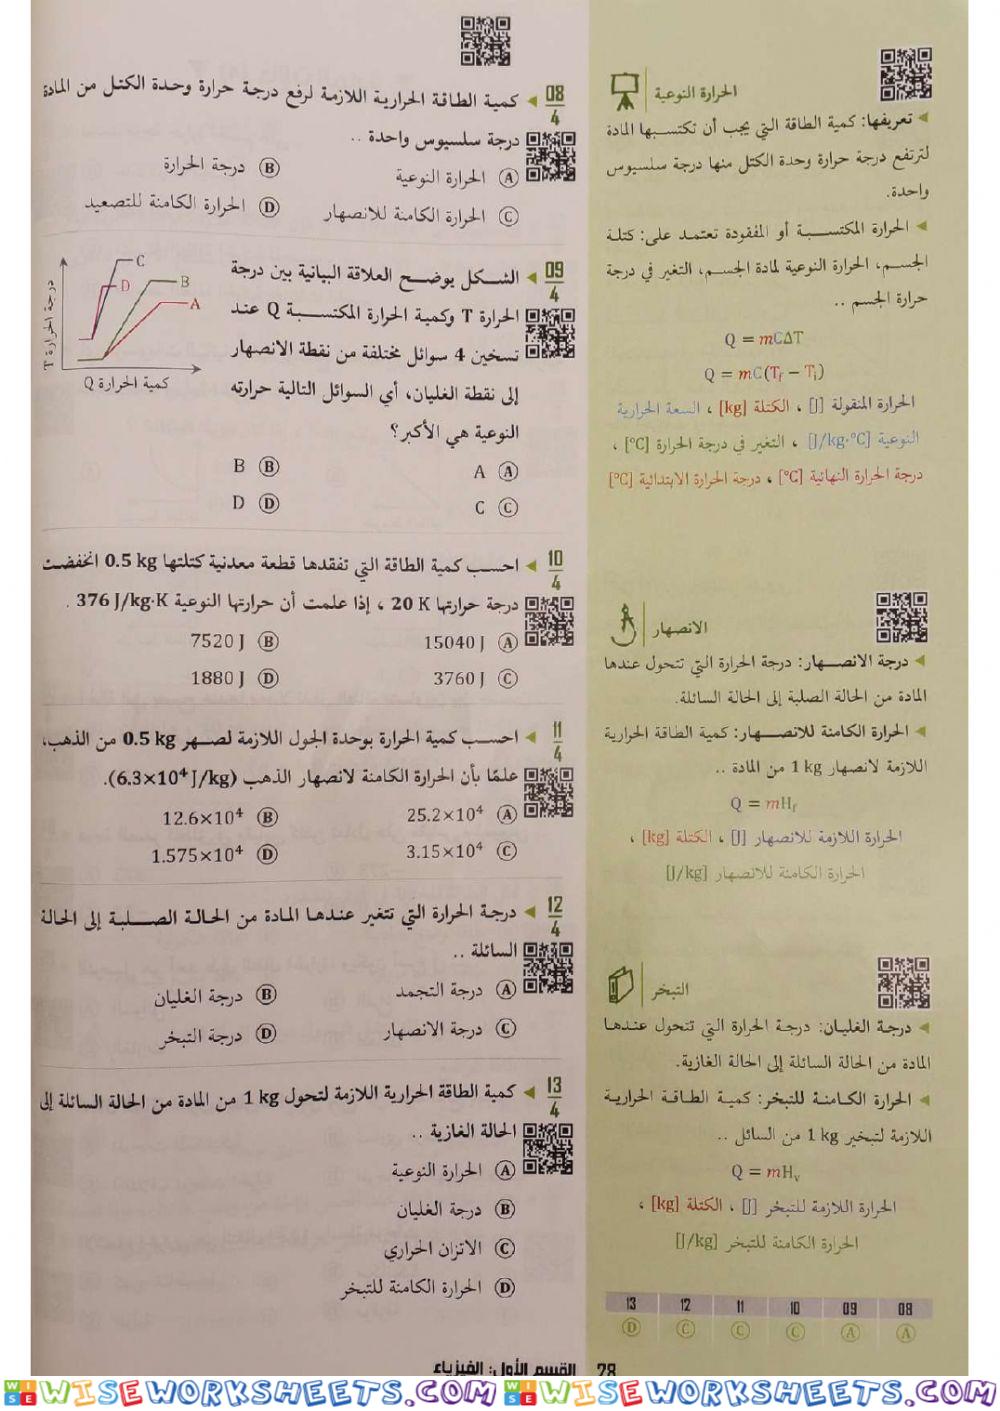 08/4 كمية الطاقة الحرارية اللازمة لرفع درجة حرارة وحدة الكتل من المادة
درجة سلسيوس واحدة ..
A الحرارة النوعية
B درجة الحرارة
C الحرارة الكامنة للانصهار
D الحرارة الكامنة للتصعيد
09/4 الشكل يوضح العلاقة البيانية بين درجة
الحرارة T وكمية الحرارة المكتسبة Q عند
تسخين 4 سوائل مختلفة من نقطة الانصهار
إلى نقطة الغليان، أي السوائل التالية حرارته
النوعية هي الأكبر؟
A A
B B
C C
D D
درجة الحرارة T
C
D
B
A
كمية الحرارة Q
10/4 احسب كمية الطاقة التي تفقدها قطعة معدنية كتلتها 0.5 kg انخفضت
درجة حرارتها 20 K ، إذا علمت أن حرارتها النوعية 376 J/kg·K .
A 15040 J
B 7520 J
C 3760 J
D 1880 J
11/4 احسب كمية الحرارة بوحدة الجول اللازمة لصهر 0.5 kg من الذهب،
علمًا بأن الحرارة الكامنة لانصهار الذهب (6.3×10⁴ J/kg).
A 25.2×10⁴
B 12.6×10⁴
C 3.15×10⁴
D 1.575×10⁴
12/4 درجة الحرارة التي تتغير عندها المادة من الحالة الصلبة إلى الحالة
السائلة ..
A درجة التجمد
B درجة الغليان
C درجة الانصهار
D درجة التبخر
13/4 كمية الطاقة الحرارية اللازمة لتحول 1 kg من المادة من الحالة السائلة إلى
الحالة الغازية ..
A الحرارة النوعية
B درجة الغليان
C الاتزان الحراري
D الحرارة الكامنة للتبخر
الحرارة النوعية
تعريفها: كمية الطاقة التي يجب أن تكتسبها المادة
لترتفع درجة حرارة وحدة الكتل منها درجة سلسيوس
واحدة.
الحرارة المكتسبة أو المفقودة تعتمد على: كتلة
الجسم، الحرارة النوعية لمادة الجسم، التغير في درجة
حرارة الجسم ..
Q = mCΔT
Q = mC(Tf − Ti)
الحرارة المنقولة [J] ، الكتلة [kg] ، السعة الحرارية
النوعية [J/kg·°C] ، التغير في درجة الحرارة [°C] ،
درجة الحرارة النهائية [°C] ، درجة الحرارة الابتدائية [°C]
الانصهار
درجة الانصهار: درجة الحرارة التي تتحول عندها
المادة من الحالة الصلبة إلى الحالة السائلة.
الحرارة الكامنة للانصهار: كمية الطاقة الحرارية
اللازمة لانصهار 1 kg من المادة ..
Q = mHf
الحرارة اللازمة للانصهار [J] ، الكتلة [kg] ،
الحرارة الكامنة للانصهار [J/kg]
التبخر
درجة الغليان: درجة الحرارة التي تتحول عندها
المادة من الحالة السائلة إلى الحالة الغازية.
الحرارة الكامنة للتبخر: كمية الطاقة الحرارية
اللازمة لتبخير 1 kg من السائل ..
Q = mHv
الحرارة اللازمة للتبخر [J] ، الكتلة [kg] ،
الحرارة الكامنة للتبخر [J/kg]
08 09 10 11 12 13
A A C C C D
28 القسم الأول: الفيزياء
WISEWORKSHEETS.COM WISEWORKSHEETS.COM